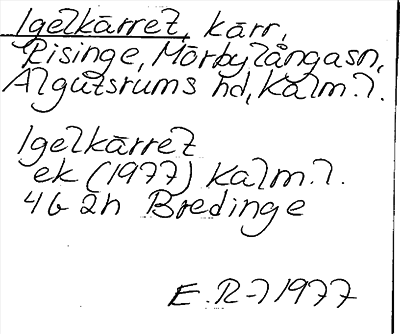 Igelkärret, kärr,
Risinge, Mörbylångasn,
Algutsrums hd, Kalm.l.
Igelkärret
ek (1977) Kalm.l.
4G 2h Bredinge
E.R-l 1977